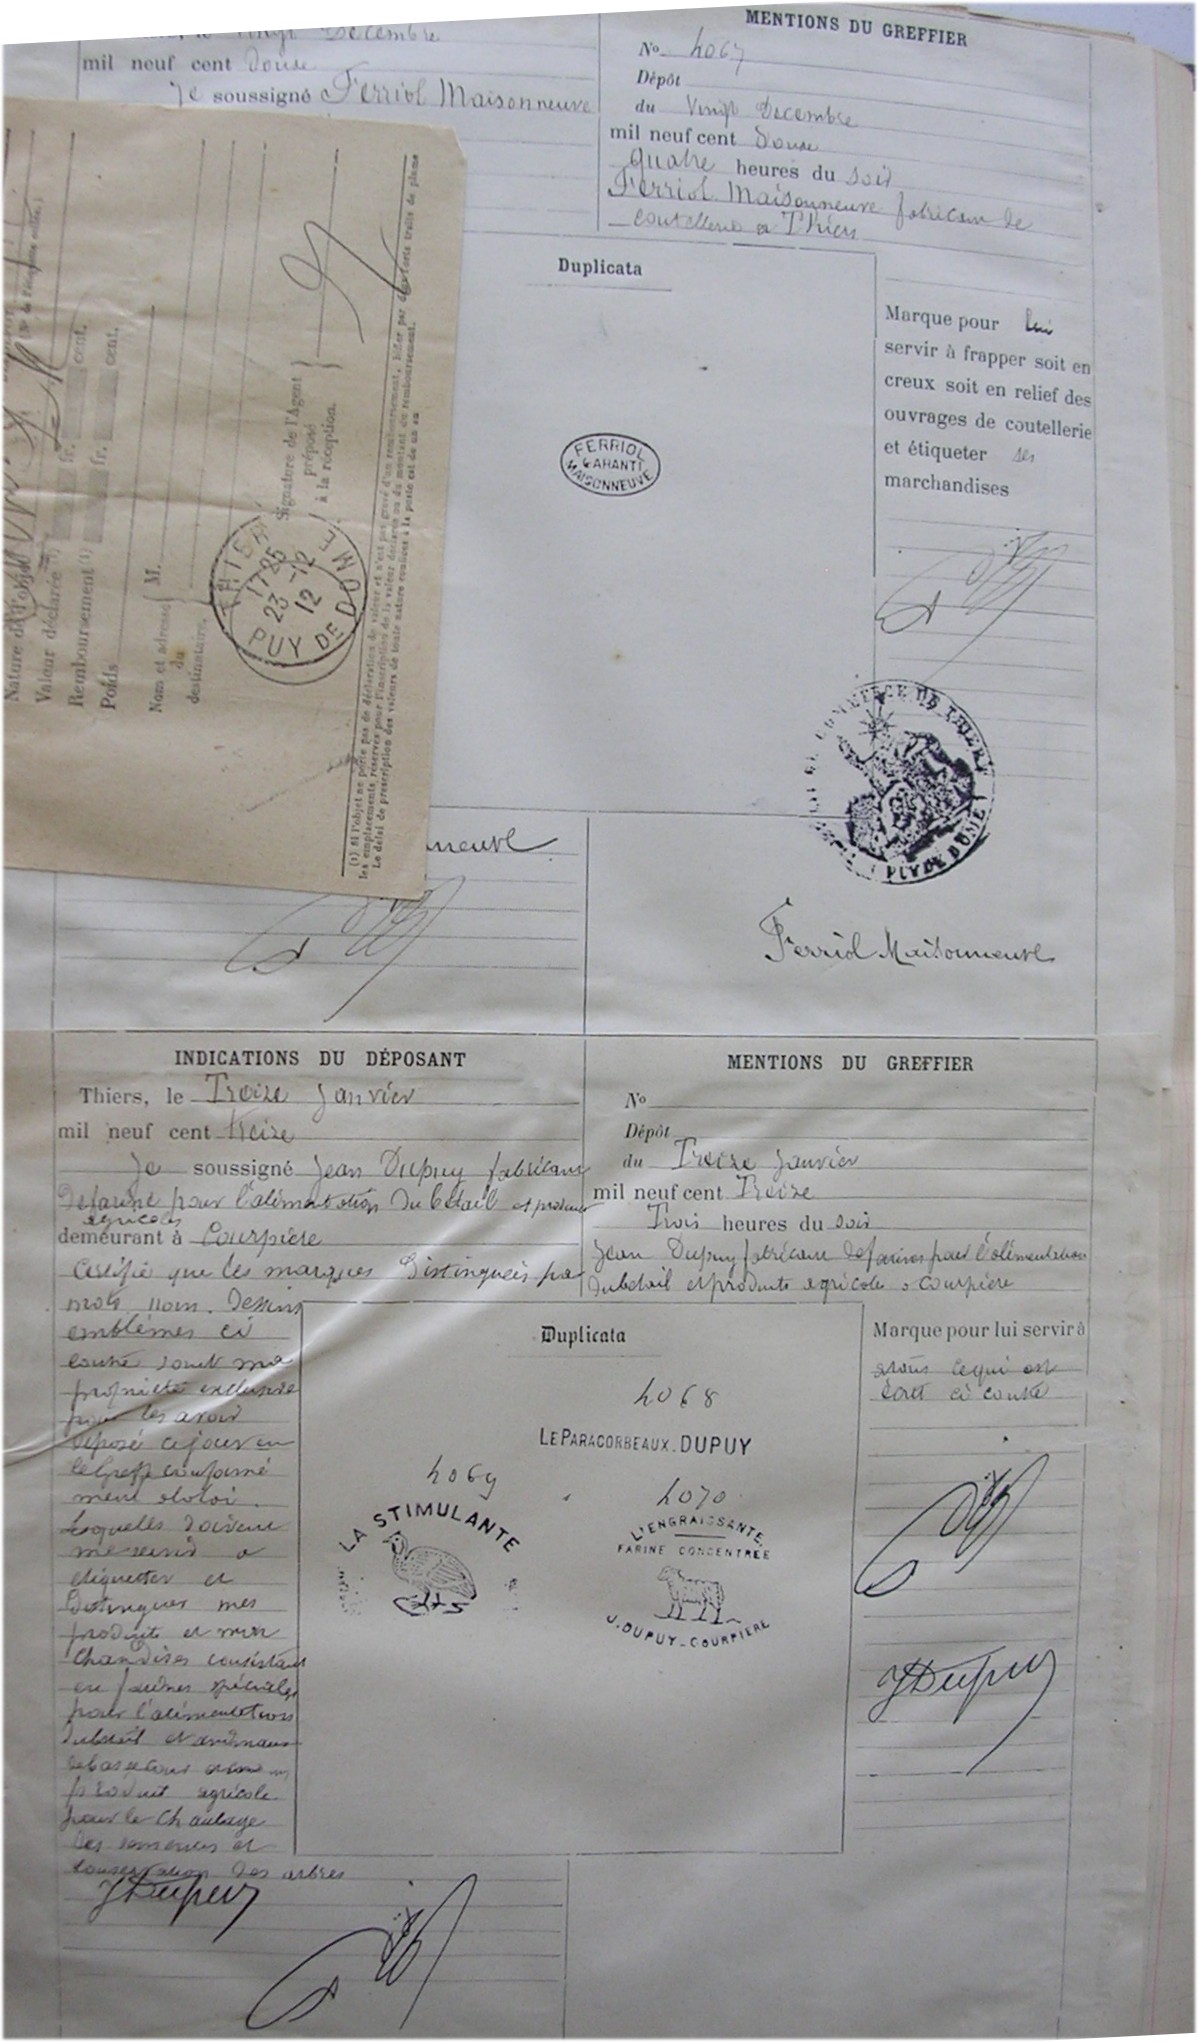 Vingt Decembre
mil neuf cent Douze
Je soussigné Ferriol Maisonneuve
MENTIONS DU GREFFIER
No 4067
Dépôt
du Vingt Decembre
mil neuf cent Douze
quatre heures du soir
Ferriol Maisonneuve fabricant de
coutellerie a Thiers
Duplicata
FERRIOL
GARANTI
MAISONNEUVE
Marque pour lui
servir à frapper soit en
creux soit en relief des
ouvrages de coutellerie
et étiqueter ses
marchandises
Valeur déclarée (1) fr. cent.
Remboursement (1) fr. cent.
Poids
Nom et adresse M.
du
destinataire.
Signature de l'Agent
préposé
à la réception.
THIERS
17 25
23 - 12
12
PUY DE DOME
(1) Si l'objet ne porte pas de déclaration de valeur et n'est pas grevé d'un remboursement, biffer par deux forts traits de plume
les emplacements réservés pour l'inscription de la valeur déclarée ou du montant du remboursement.
Le délai de prescription des valeurs de toute nature confiées à la poste est de un an
COMMERCE DE THIERS
PUY DE DOME
Ferriol Maisonneuve
INDICATIONS DU DÉPOSANT
Thiers, le Treize Janvier
mil neuf cent treize
Je soussigné Jean Dupuy fabricant
De farine pour l'alimentation Du bétail et produits
agricoles
demeurant à Courpière
Certifie que les marques Distinguées par
mots nom. Dessins
emblèmes ci
contre sont ma
propriété exclusive
pour les avoir
déposé ce jour au
le Greffe conformé
ment a la loi.
Lesquelles Doivent
me servir a
etiquetter et
Distinguer mes
produits et mar
chandises consistant
en farines spéciales
pour l'alimentation
Du bétail et animaux
produit agricole
pour le Chaulage
Des semences et
conservation Des arbres
J Dupuy
MENTIONS DU GREFFIER
No
Dépôt
du Treize Janvier
mil neuf cent Treize
Trois heures du soir
Jean Dupuy fabricant de farines pour l'alimentation
Du betail et produits agricoles a Courpière
Duplicata
4068
LE PARACORBEAUX. DUPUY
4069
LA STIMULANTE
4070
L'ENGRAISSANTE
FARINE CONCENTREE
J. DUPUY - COURPIERE
Marque pour lui servir à
tout ce qui est
écrit ci contre
J Dupuy